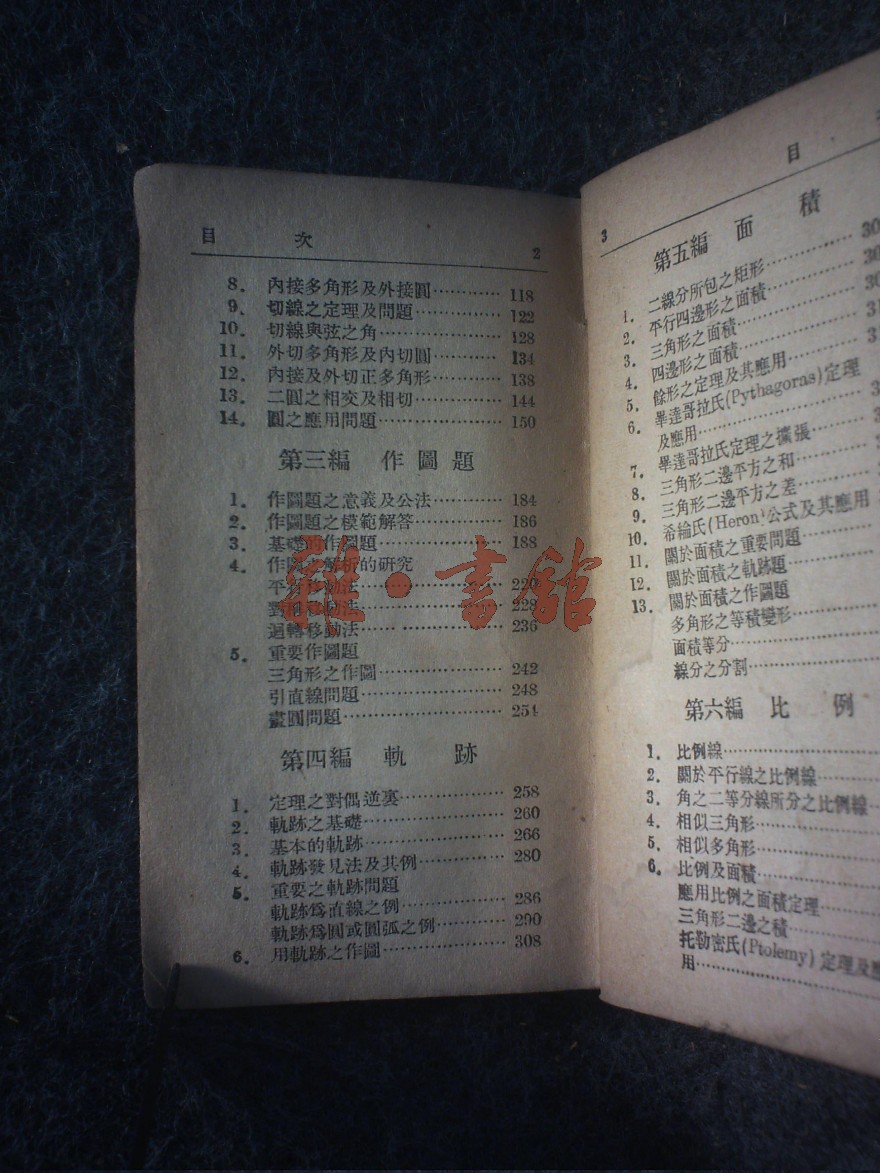 目 次 2
8. 內接多角形及外接圓………… 118
9. 切線之定理及問題………… 122
10. 切線與弦之角………… 128
11. 外切多角形及內切圓………… 134
12. 內接及外切正多角形………… 138
13. 二圓之相交及相切………… 144
14. 圓之應用問題………… 150
第三編 作圖題
1. 作圖題之意義及公法………… 184
2. 作圖題之模範解答………… 186
3. 基礎的作圖題………… 188
4. 作圖之解析的研究
平行移動法………… 220
對稱移動法………… 228
迴轉移動法………… 236
5. 重要作圖題
三角形之作圖………… 242
引直線問題………… 248
畫圓問題………… 254
第四編 軌跡
1. 定理之對偶逆裏………… 258
2. 軌跡之基礎………… 260
3. 基本的軌跡………… 266
4. 軌跡發見法及其例………… 280
5. 重要之軌跡問題
軌跡爲直線之例………… 286
軌跡爲圓或圓弧之例………… 290
6. 用軌跡之作圖………… 308
雜·書館
3 目
第五編 面積
1. 二線分所包之矩形………… 30
2. 平行四邊形之面積………… 30
3. 三角形之面積………… 30
4. 四邊形之面積………… 31
5. 餘形之定理及其應用………… 3
6. 畢達哥拉氏(Pythagoras)定理
及應用………… 3
7. 畢達哥拉氏定理之擴張………… 3
8. 三角形二邊平方之和…………
9. 三角形二邊平方之差…………
10. 希綸氏(Heron)公式及其應用
11. 關於面積之重要問題…………
12. 關於面積之軌跡題…………
13. 關於面積之作圖題
多角形之等積變形…………
面積等分…………
線分之分割…………
第六編 比例
1. 比例線…………
2. 關於平行線之比例線…………
3. 角之二等分線所分之比例線…………
4. 相似三角形…………
5. 相似多角形…………
6. 比例及面積…………
應用比例之面積定理…………
三角形二邊之積…………
托勒密氏(Ptolemy)定理及應
用…………